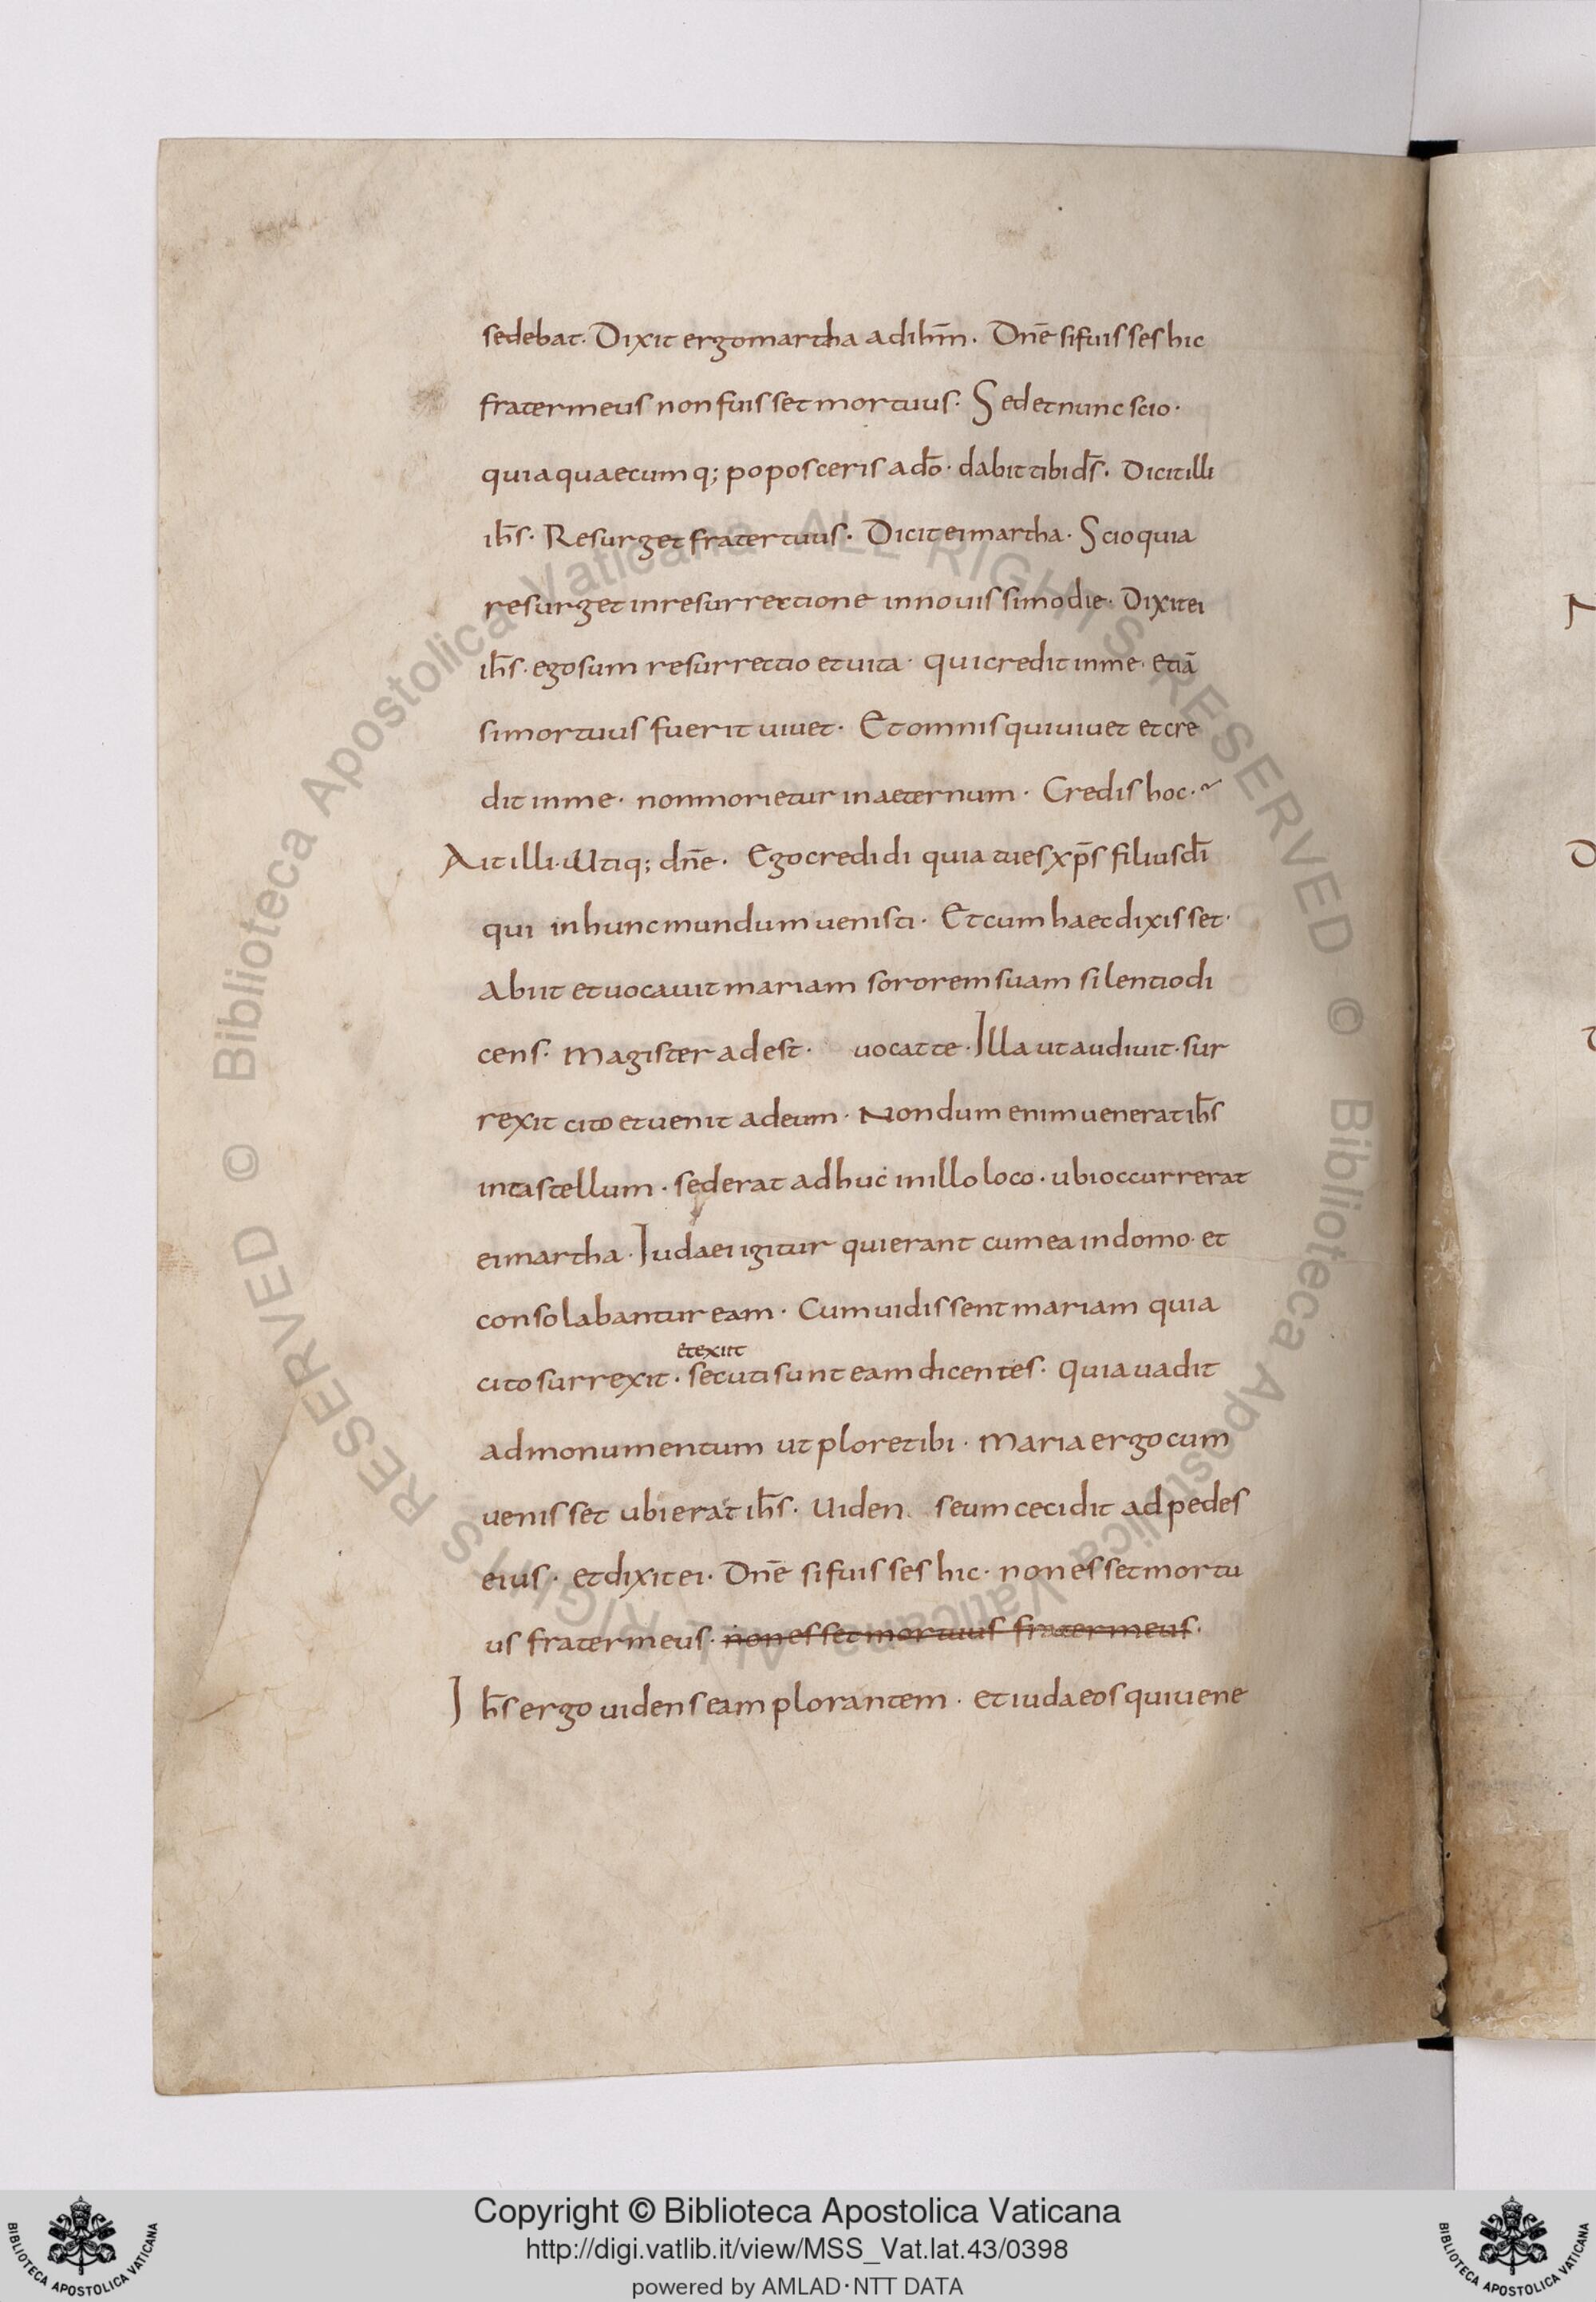 sedebat. Dixit ergo martha ad ih̅m̅. Dn̅e si fuisses hic
frater meus non fuisset mortuus. Sed et nunc scio.
quia quaecumq; poposceris a do̅. dabit tibi ds̅. Dicit illi
ih̅s. Resurget frater tuus. Dicit ei martha. Scio quia
resurget in resurrectione in nouissimo die. Dixit ei
ih̅s. ego sum resurrectio et uita. qui credit in me. etiā
si mortuus fuerit uiuet. Et omnis qui uiuet et cre
dit in me. non morietur in aeternum. Credis hoc.~
Ait illi. Utiq; dn̅e. Ego credidi quia tu es xp̅s filius di̅
qui in hunc mundum uenisti. Et cum haec dixisset.
abiit et uocauit mariam sororem suam silentio di
cens. Magister adest. uocat te. Illa ut audiuit. sur
rexit cito et uenit ad eum. Nondum enim uenerat ih̅s
in castellum. sed erat adhuc in illo loco. ubi occurrerat
ei martha. Iudaei igitur qui erant cum ea in domo. et
consolabantur eam. Cum uidissent mariam quia
et exiit
cito surrexit. secuti sunt eam dicentes. Quia uadit
ad monumentum ut ploret ibi. Maria ergo cum
uenisset ubi erat ih̅s. Uiden s eum cecidit ad pedes
eius. et dixit ei. Dn̅e si fuisses hic. non esset mortu
us frater meus. non esset mortuus frater meus.
Ih̅s ergo uidens eam plorantem. et iudaeos qui uene
Copyright © Biblioteca Apostolica Vaticana
http://digi.vatlib.it/view/MSS_Vat.lat.43/0398
powered by AMLAD·NTT DATA